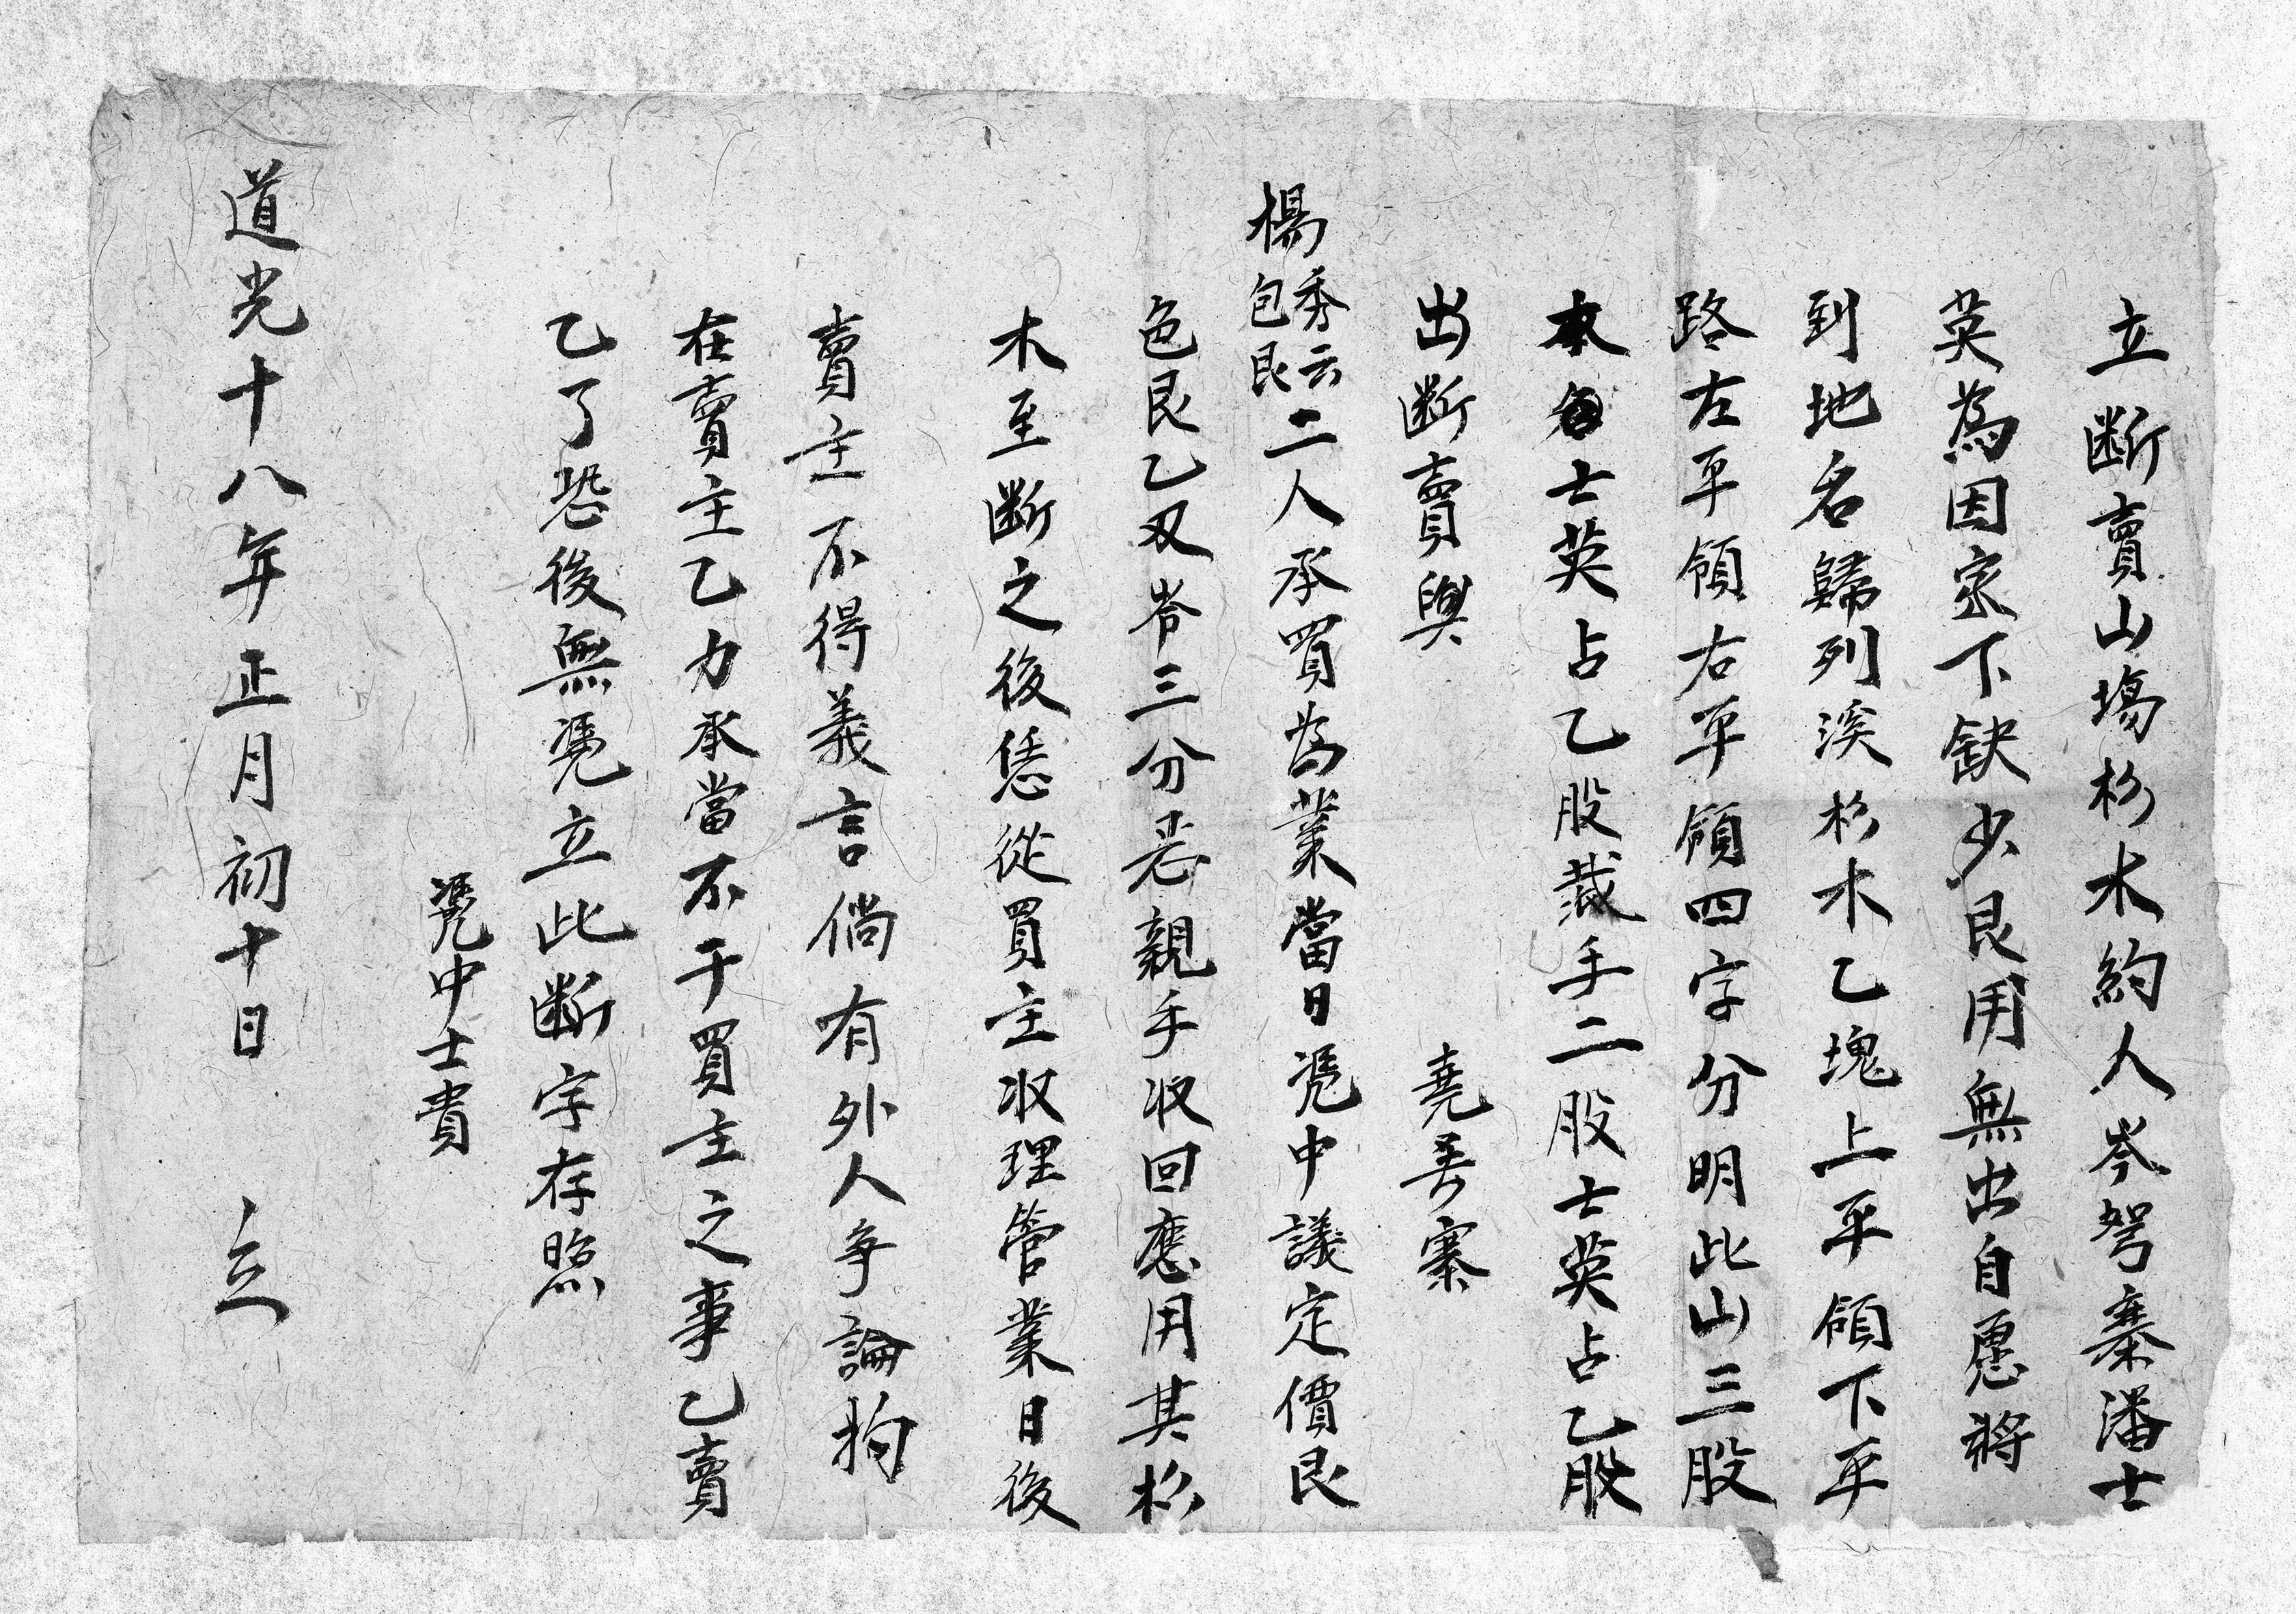 立断賣山塲杉木約人岑努寨潘士
英為因家下缺少艮用無出自愿將
到地名歸列溪杉木乙塊上平領下平
路左平領右平領四字分明此山三股
本名士英占乙股栽手二股士英占乙股
出断賣與 堯吾寨
楊秀云包艮二人承買為業當日凴中議定價艮
色艮乙双岺三分悉親手收回應用其杉
木至断之後恁從買主収理管業日後
賣主不得義言倘有外人争論拘
在賣主乙力承當不干買主之事乙賣
乙了恐後無凴立此断字存照
凴中士貴
道光十八年正月初十日 立